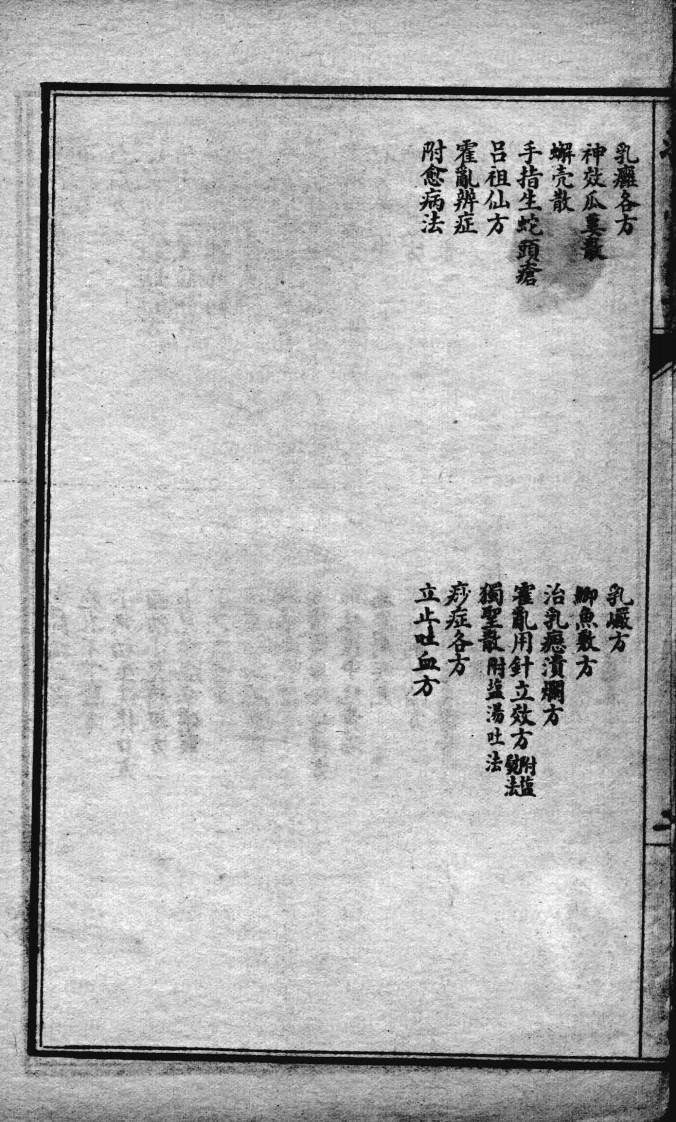 乳癰各方
神效瓜蔞散
蟹壳散
手指生蛇頭瘡
呂祖仙方
霍亂辨症
附愈病法
乳巖方
鯽魚敷方
治乳癌潰爛方
霍亂用針立效方 附塩熨法
獨聖散 附塩湯吐法
痧症各方
立止吐血方